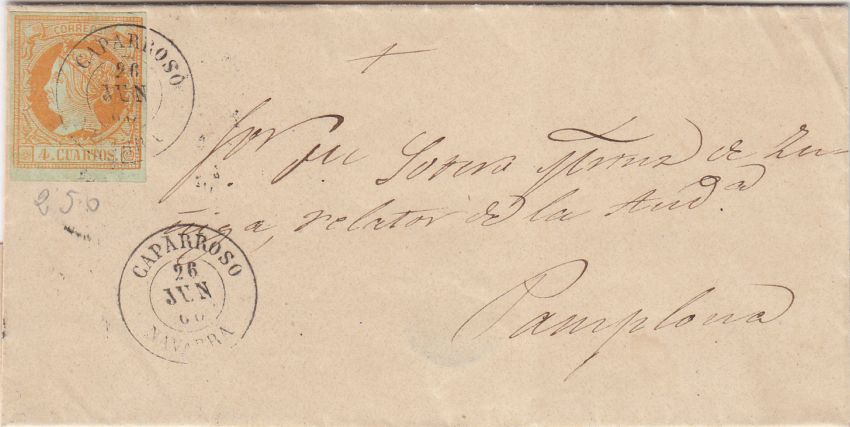 CORREOS
4 CUARTOS
CAPARROSO
26
JUN
60
250
de Zu-
ñiga, relator de la Aud.a
Pamplona
CAPARROSO
26
JUN
60
NAVARRA